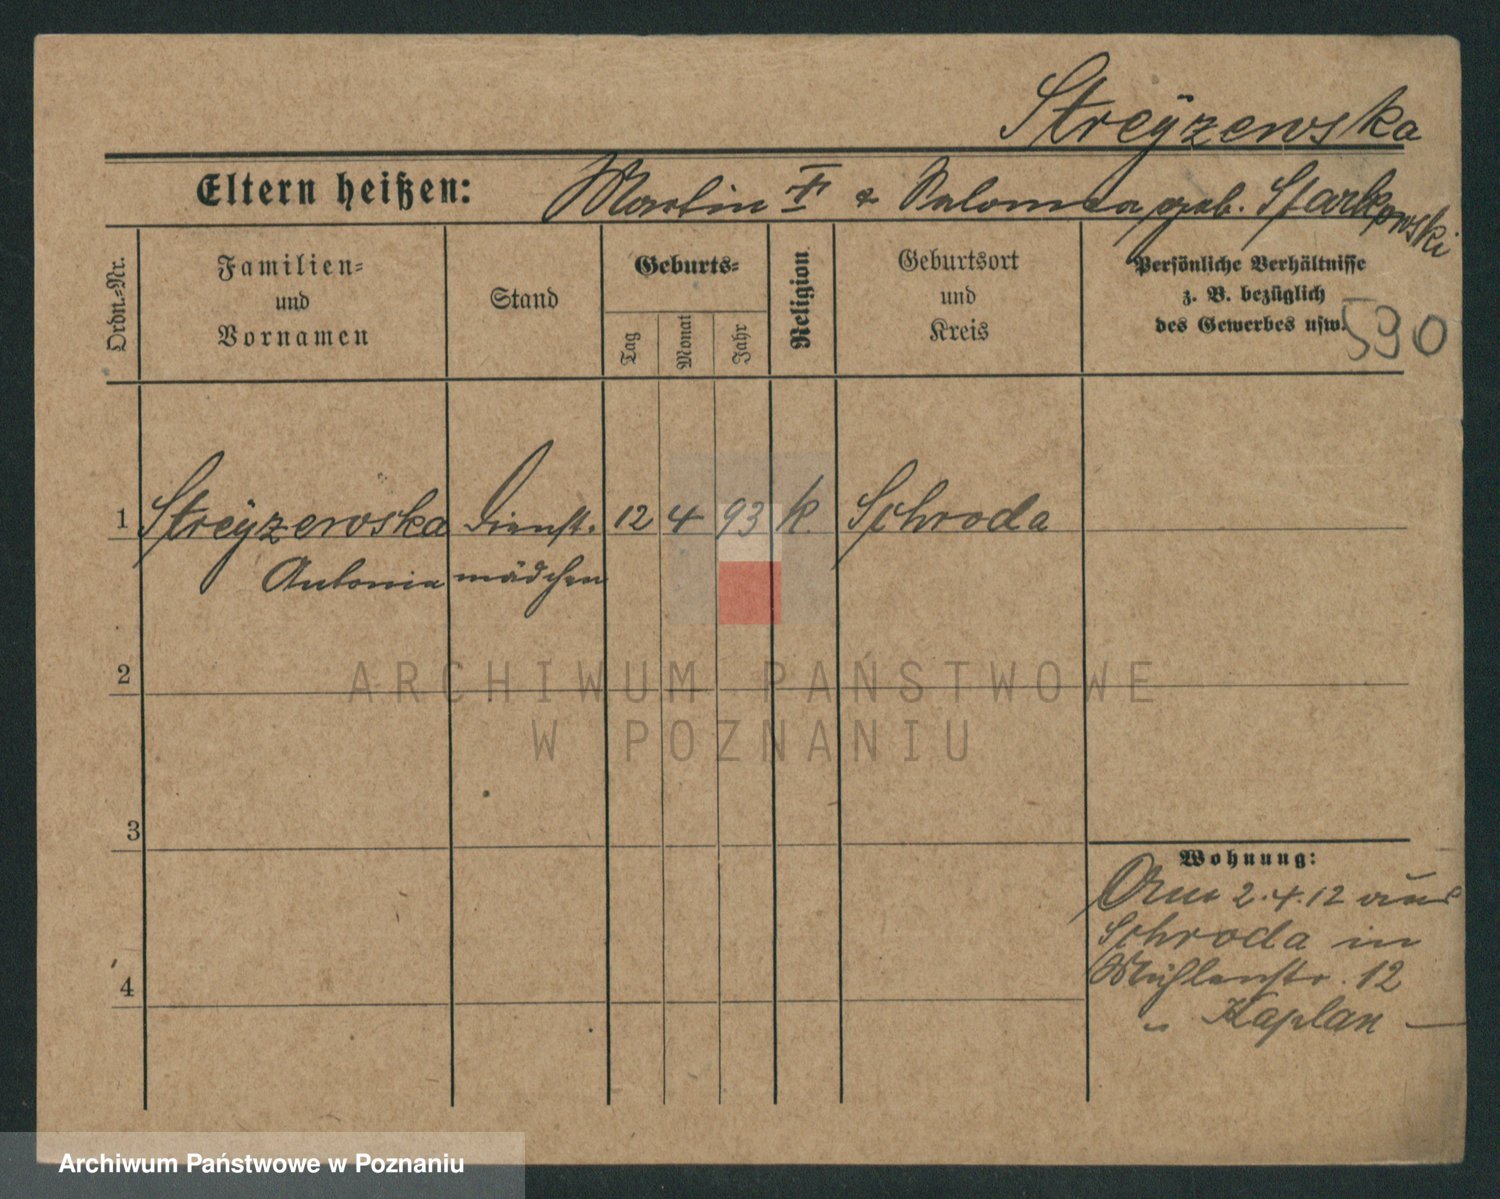 Streÿzewska
Eltern heißen: Martin † & Salomea geb. Starkowski
Ordn.=Nr.
Familien=
und
Vornamen
Stand
Geburts=
Tag
Monat
Jahr
Religion
Geburtsort
und
Kreis
Persönliche Verhältnisse
z. B. bezüglich
des Gewerbes usw.
590
1 Streÿzewska Dienst- 12 4 93 k. Schroda
Antonia mädchen
2
3
4
Wohnung:
Am 2.4.12 aus
Schroda in
Mühlenstr. 12
" Kaplan —
ARCHIWUM PAŃSTWOWE
W POZNANIU
Archiwum Państwowe w Poznaniu